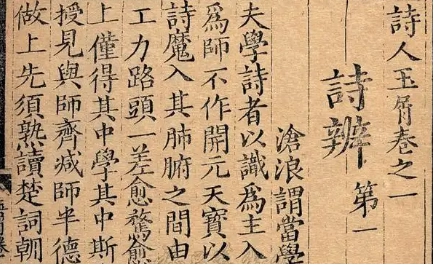 詩人玉屑卷之一
詩辨第一
滄浪謂當學
夫學詩者以識為主入
為師不作開元天寶以
詩魔入其肺腑之間由
工力路頭一差愈騖愈
上僅得其中學其中斯
授見與師齊減師半德
做上先須熟讀楚詞朝